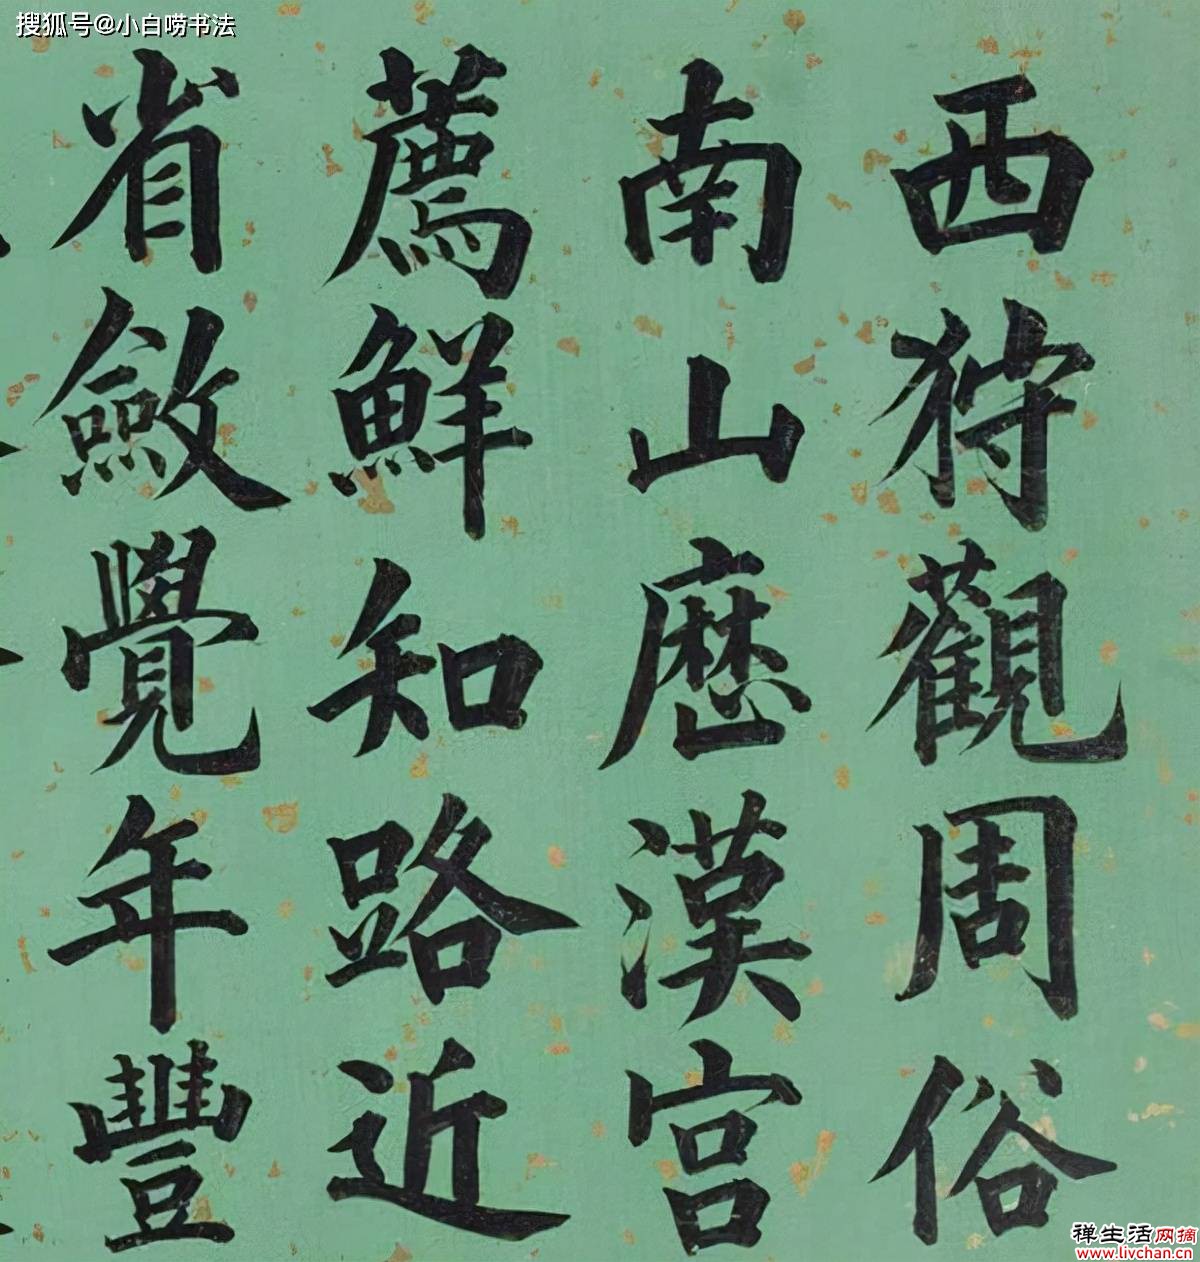 搜狐号@小白唠书法
西狩觀周俗
南山歷漢宫
薦鮮知路近
省斂覺年豐
禅生活网摘
www.livchan.cn